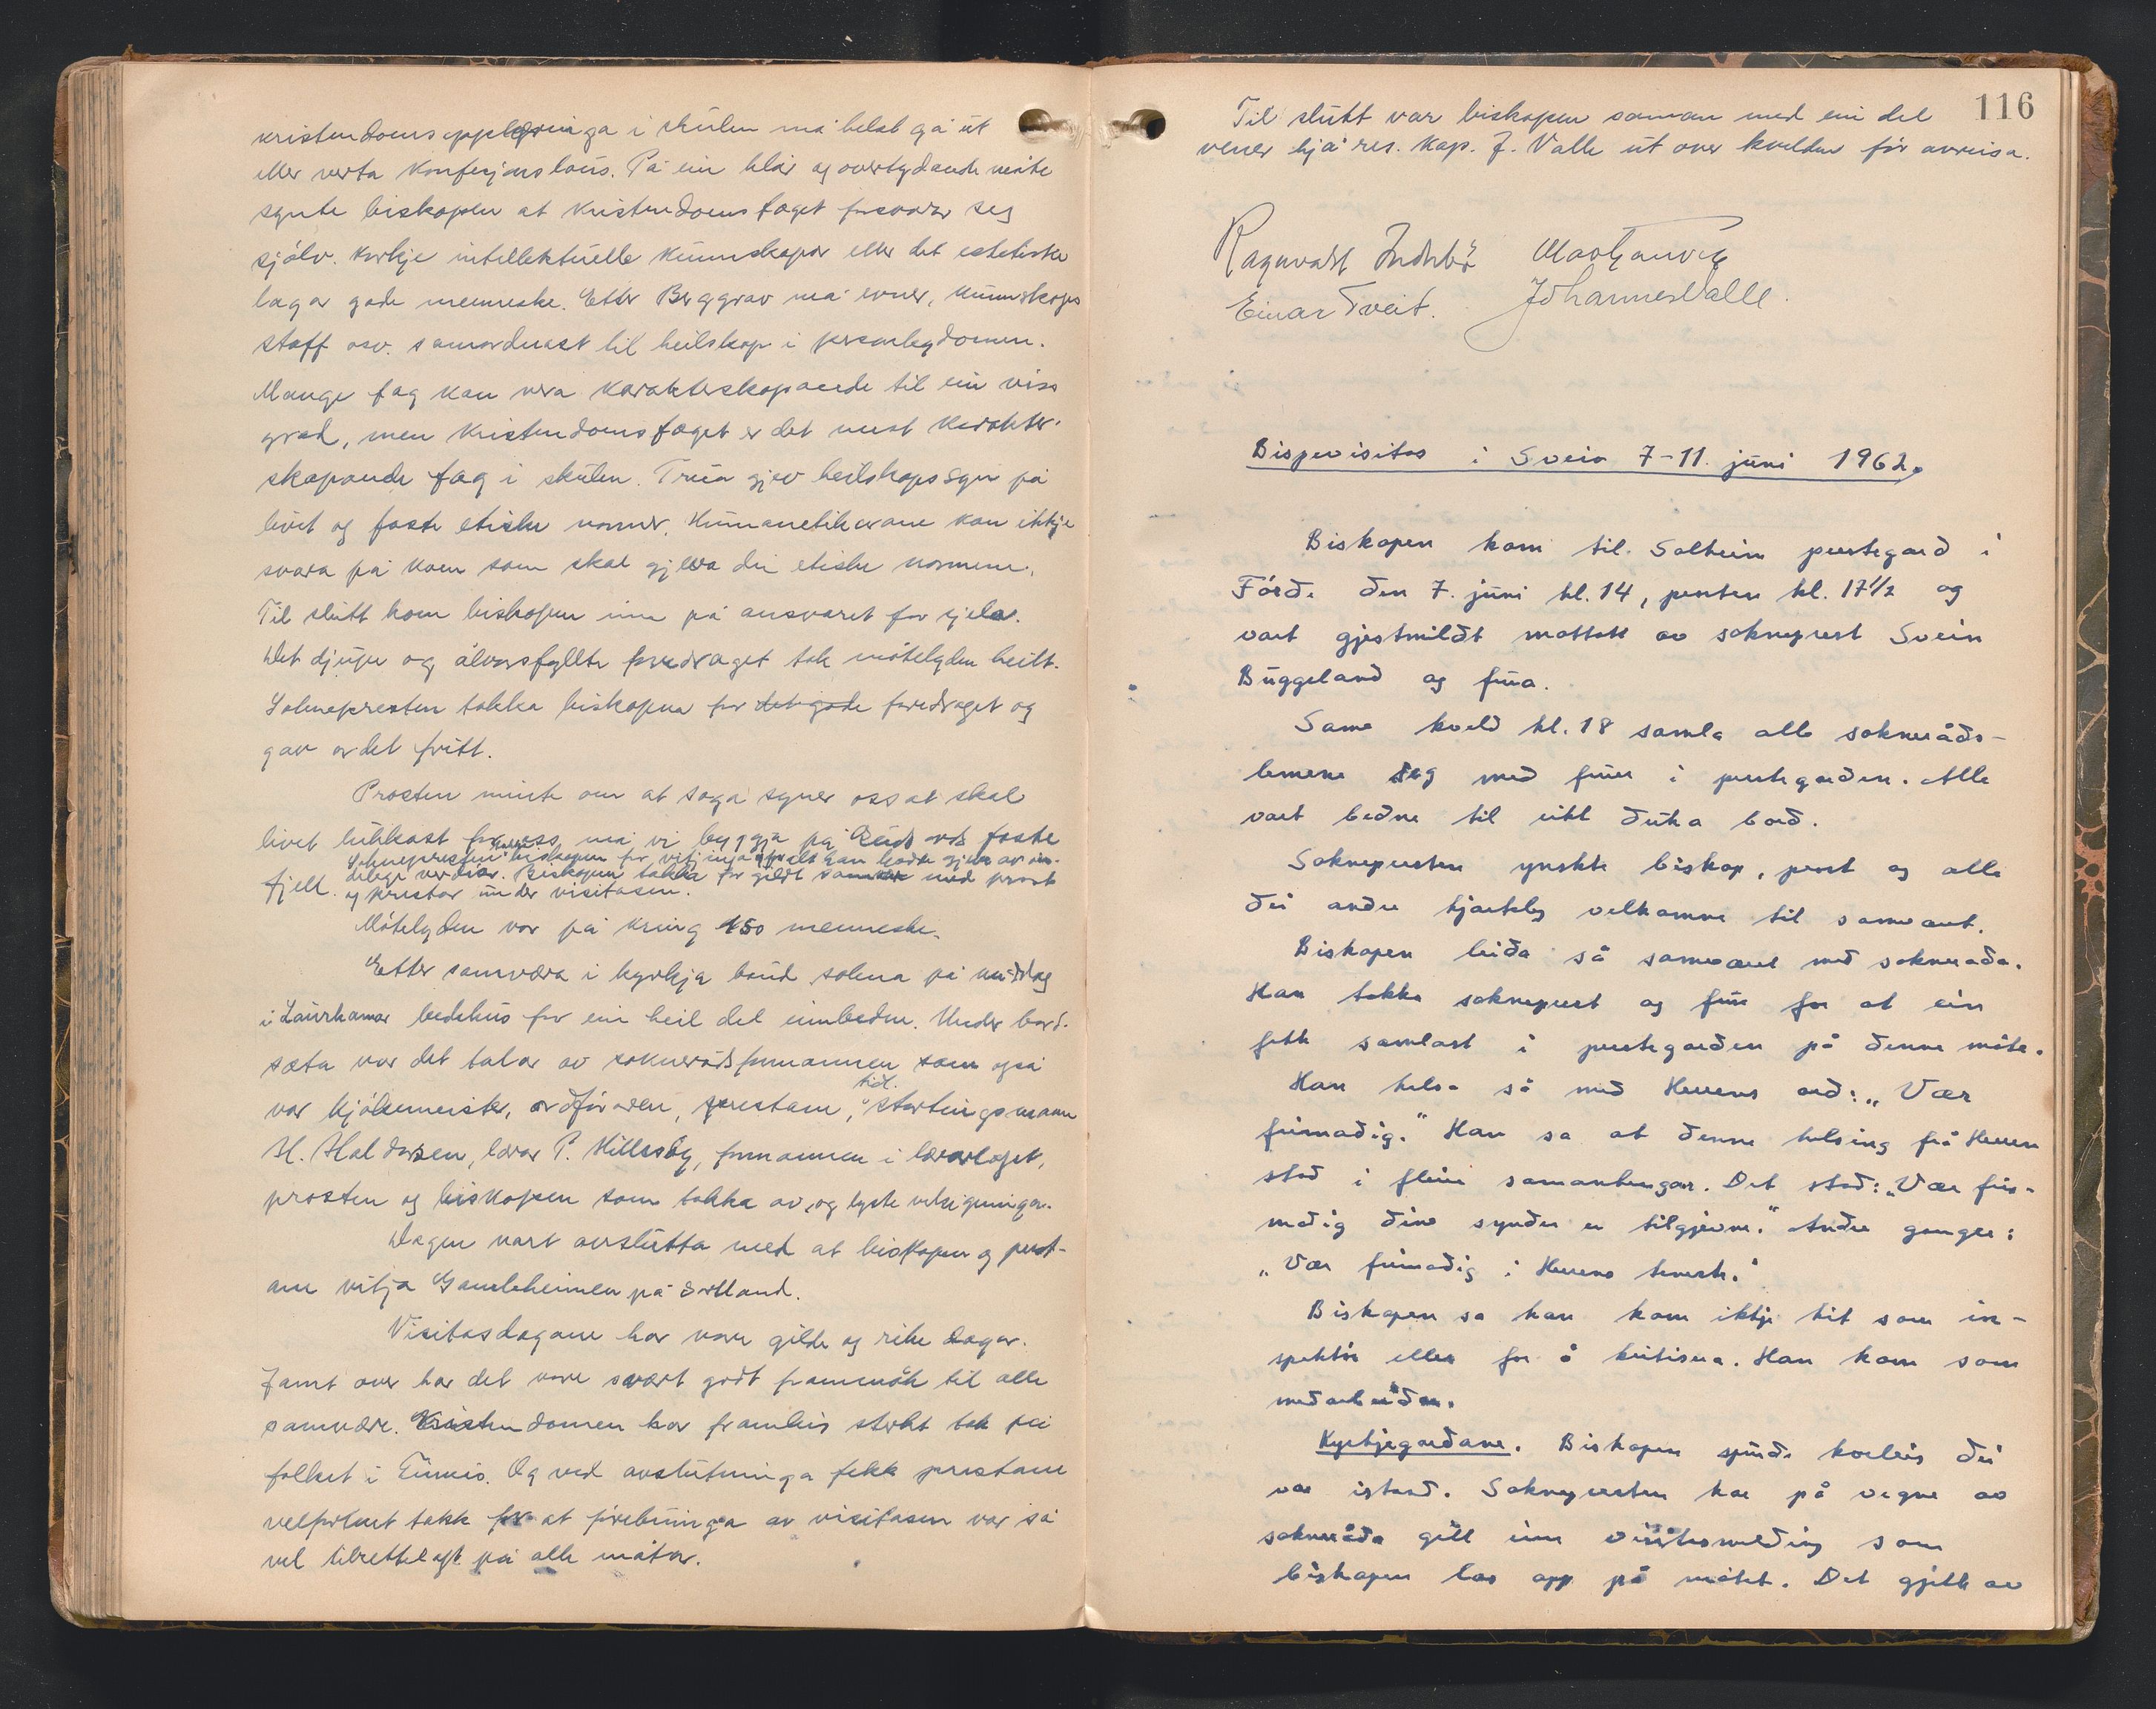 kristendomsopplæringa i skulen må helst gå ut
eller verta konfesjonslaus. På ein klår og overtydande måte
synte biskopen at kristendomsfaget forsvarar seg
sjølv. Korkje intellektuelle kunnskapar eller det estetiske
lagar gode menneske. Etter Berggrav må evner, kunnskaps
stoff osv. samordnast til heilskap i personlegdomen.
Mange fag kan vera karakterskapande til ein viss
grad, men kristendomsfaget er det mest karakter-
skapande fag i skulen. Trua gjev heilskapssyn på
livet og faste etiske normer. Humanetikarane kan ikkje
svara på kven som skal gjeva dei etiske normene.
Til slutt kom biskopen inn på ansvaret for sjela.
Det djupe og ålvorsfyllte foredraget tok møtelyden heilt.
Soknepresten takka biskopen for det gode foredraget og
gav ordet fritt.
Prosten minte om at soga syner oss at skal
livet lukkast for oss, må vi byggja på Guds ords faste
fjell. Soknepresten takka biskopen for vitjinga og for alt han hadde gjeve av ån-
delege verdiar. Biskopen takka for gildt samvær med prost
og prestar under visitasen.
Møtelyden var på kring 450 menneske.
Etter samværa i kyrkja baud sokna på middag
i Laurhamar bedehus for ein heil del innbedne. Under bord-
sæta var det talar av soknerådsformannen som også
var kjøkemeister, ordføraren, prestane, tidl. stortingsmann
H. Haldorsen, lærar P. Hillesøy, formannen i lærarlaget,
prosten og biskopen som takka av, og lyste velsigninga.
Dagen vart avslutta med at biskopen og prest-
ane vitja Gamleheimen på Ørlland.
Visitasdagane har vore gilde og rike dagar.
Jamt over har det vore svært godt frammøte til alle
samvære. Kristendomen har framleis sterkt tak på
folket i Finnås. Og ved avslutninga fekk prestane
velfortent takk for at fyrebuinga av visitasen var så
vel tilrettelagt på alle måtar.
116
Til slutt var biskopen saman med ein del
vener hjå res. kap. J. Valle ut over kvelden før avreisa.
Ragnvald Indrebø
Einar Tveit. Johannes Valle.
Bispevisitas i Sveio 7-11. juni 1962.
Biskopen kom til Solheim prestegard i
Førde den 7. juni kl. 14, prosten kl. 17½ og
vart gjestmildt mottatt av sokneprest Svein
Buggeland og frua.
Same kveld kl. 18 samla alle sokneråds-
lemene seg med fruer i prestegarden. Alle
vart bedne til eitt duka bord.
Soknepresten ynskte biskop, prost og alle
dei andre hjarteleg velkomne til samvært.
Biskopen leida så samværet med sokneråda.
Han takka sokneprest og frue for at ein
fekk samlast i prestegarden på denne måte.
Han helsa så med Herrens ord: „Vær
frimodig." Han sa at denne helsing frå Herren
stod i fleire samanhengar. Det stod: „Vær fri-
modig dine synder er tilgjevne." Andre gonger:
„Vær frimodig i Herrens teneste."
Biskopen sa han kom ikkje hit som in-
spektør eller for å kritisera. Han kom som
medarbeidar.
Kyrkjegardane. Biskopen spurde korleis dei
var istand. Soknepresten har på vegne av
sokneråda gitt inn visitasmelding som
biskopen las opp på møtet. Det gjekk av